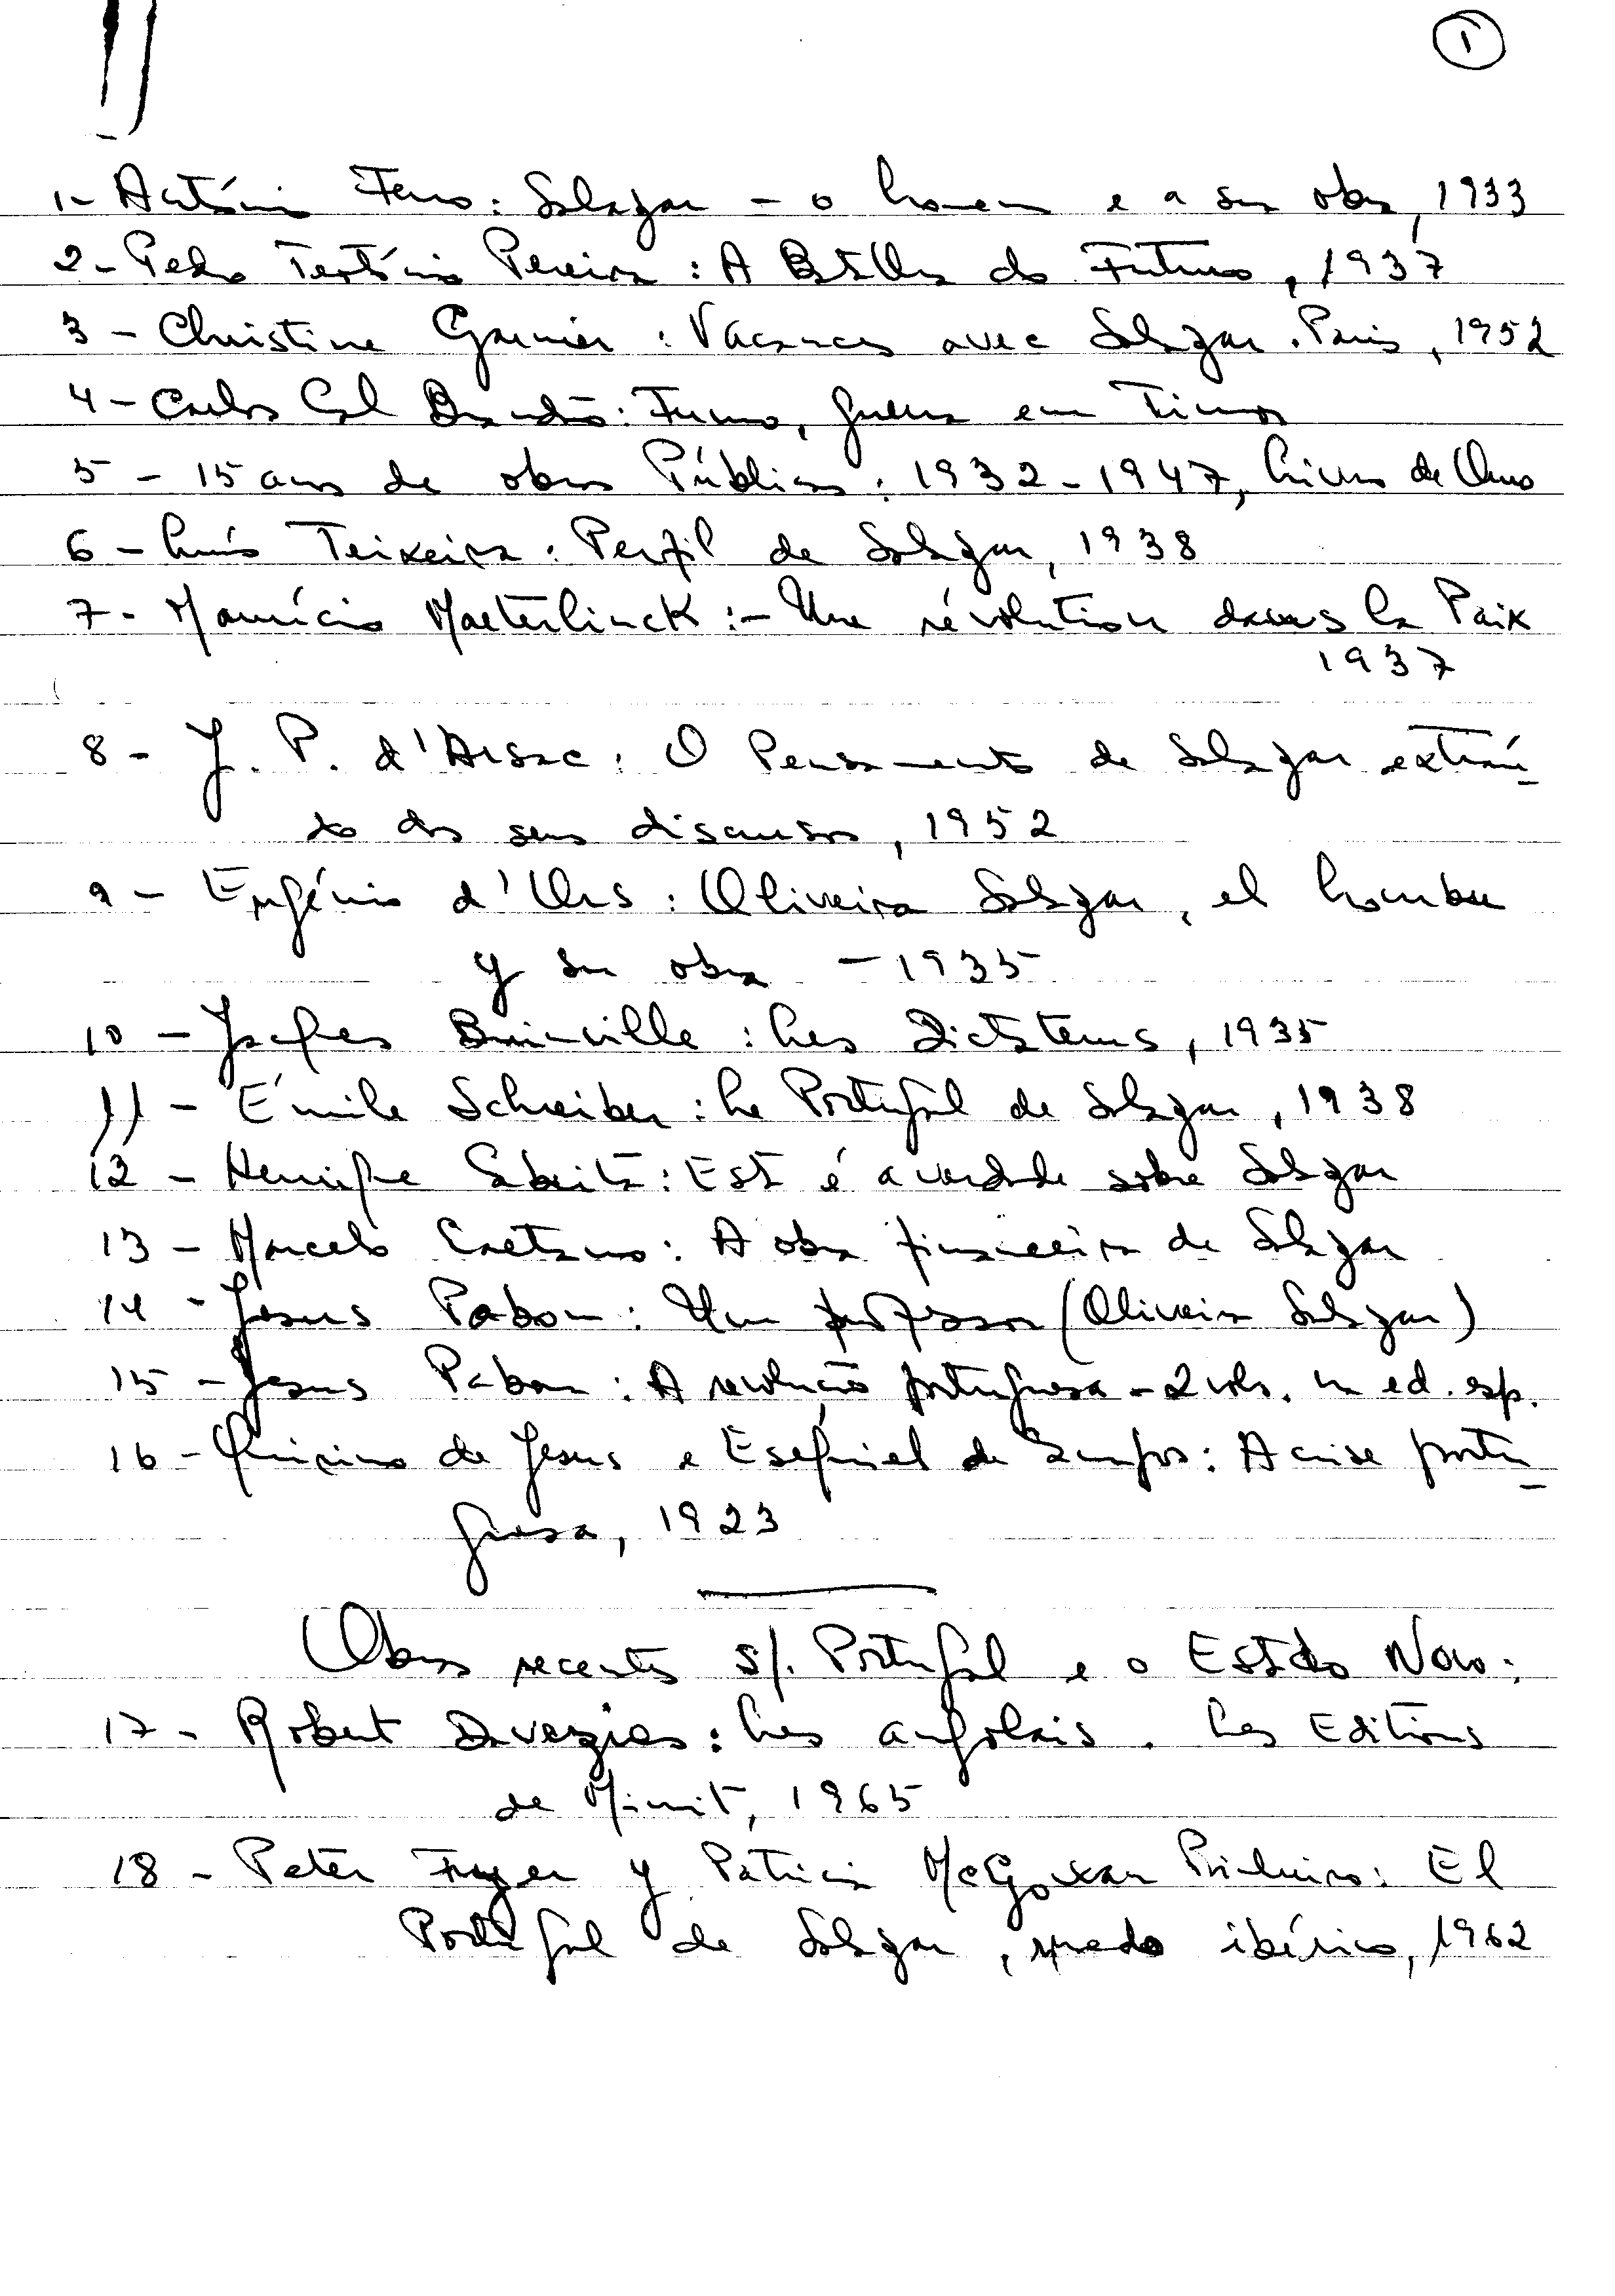 1
1- António Ferro: Salazar - o homem e a sua obra, 1933
2- Pedro Teotónio Pereira: A Batalha do Futuro, 1937
3 - Christine Garnier: Vacances avec Salazar. Paris, 1952
4 - Carlos Cal Brandão: Funo, guerra em Timor
5 - 15 anos de obras Públicas: 1932-1947, Livro de Ouro
6 - Luís Teixeira: Perfil de Salazar, 1938
7- Maurício Maeterlinck:- Une révolution dans la Paix
1937
8- J. P. d'Arsac: O Pensamento de Salazar extraí-
do dos seus discursos, 1952
9 - Eugénio d'Ors: Oliveira Salazar, el hombre
y su obra - 1935
10 - Jacques Bainville: Les Dictateurs, 1935
11 - Émile Schreiber: Le Portugal de Salazar, 1938
12 - Henrique Cabrita: Esta é a verdade sobre Salazar
13 - Marcelo Caetano: A obra financeira de Salazar
14 - Jesus Pabon: Um professor (Oliveira Salazar)
15 - Jesus Pabon: A revolução portuguesa - 2 vols. in ed. esp.
16 - Quirino de Jesus e Esequiel de Campos: A crise portu-
guesa, 1923
Obras recentes s/. Portugal e o Estado Novo:
17 - Robert Davezies: Les angolais. Les Editions
de Minuit, 1965
18 - Peter Fryer y Patricia McGowan Pinheiro: El
Portugal de Salazar, ruedo ibérico, 1962